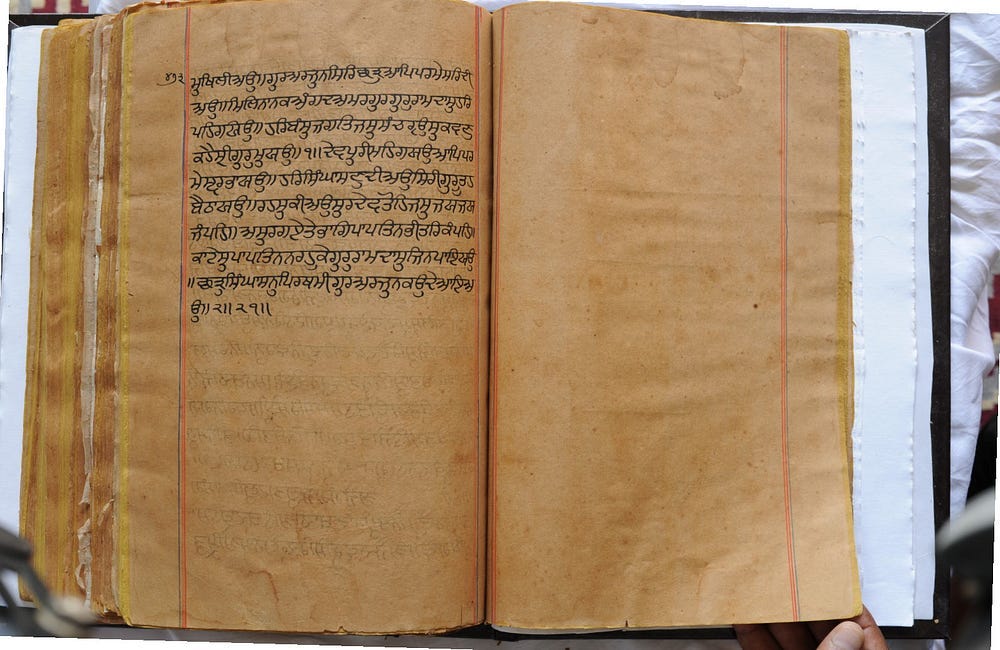 ੪੭੨ ਮੁਖਿਲੀਅਉ॥ਗੁਰਅਰਜੁਨਸਿਰਿਛਤ੍ਰੁਆਪਿਪਰਮੇਸਰਿਦੀ
ਅਉ॥ਮਿਲਿਨਾਨਕਅੰਗਦਅਮਰਗੁਰਗੁਰੁਰਾਮਦਾਸੁਹਰਿ
ਪਹਿਗਯਉ॥ਹਰਿਬੰਸੁਜਗਤਿਜਸੁਸੰਚਰ੍ਯਉਸੁਕਵਣੁ
ਕਹੈਸ੍ਰੀਗੁਰੁਮੁਯਉ॥੧॥ਦੇਵਪੁਰੀਮਹਿਗਯਉਆਪਿਪਰ
ਮੇਸ੍ਵਰਭਾਯਉ॥ਹਰਿਸਿੰਘਾਸਣੁਦੀਅਉਸਿਰੀਗੁਰੁਤਹ
ਬੈਠਾਯਉ॥ਰਹਸੁਕੀਅਉਸੁਰਦੇਵਤੋਹਿਜਸੁਜਯਜਯ
ਜੰਪਹਿ॥ਅਸੁਰਗਏਤੇਭਾਗਿਪਾਪਤਿਨਭੀਤਰਿਕੰਪਹਿ॥
ਕਾਟੇਸੁਪਾਪਤਿਨਨਰਹੁਕੇਗੁਰੁਰਾਮਦਾਸੁਜਿਨਪਾਇਯਉ
॥ਛਤ੍ਰੁਸਿੰਘਾਸਨੁਪਿਰਥਮੀਗੁਰਅਰਜੁਨਕਉਦੇਆਇਅ
ਉ॥੨॥੨੧॥